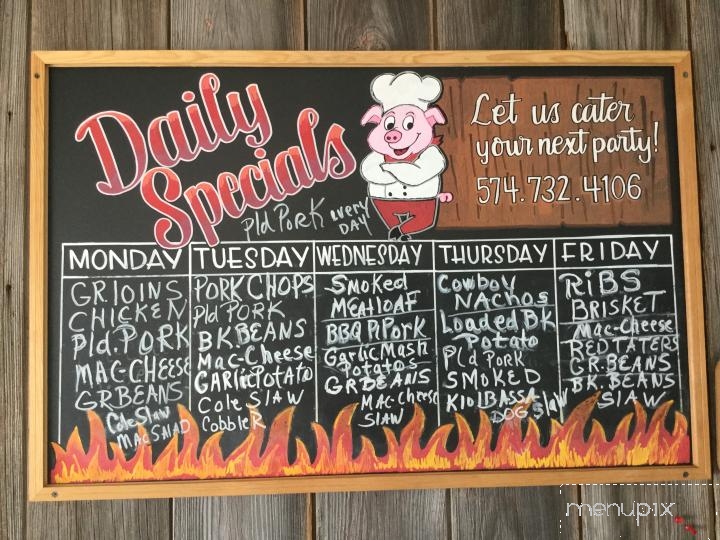 Daily
Specials
Pld PORK every
DAY
Let us cater
your next party!
574.732.4106
MONDAY
GR.lOINS
CHICKEN
Pld. PORK
MAC-CHEESE
GR BEANS
Cole Slaw
MAC SALAD
TUESDAY
PORK CHOPS
Pld PORK
BK BEANS
Mac-Cheese
GARlic Potato
Cole SlAW
CobbleR
WEDNESDAY
Smoked
MEAtlOAF
BBQ P.Pork
GaRlic Mash
Potatos
GR BEANS
MAC-Cheese
SlAW
THURSDAY
Cowboy
NACHos
Loaded BK
Potato
Pld PoRK
SMOKED
KIOlBASSA
DOG Slaw
FRIDAY
RiBS
BRISKET
Mac-Cheese
RED TATERS
GR. BEANS
BK. BEANS
SlAW
menupix